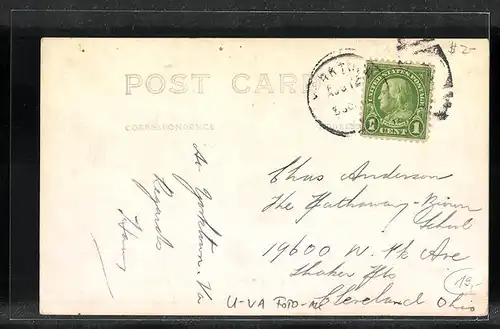 $2-
POST CARD
CORRESPONDENCE
AUG 12
UNITED STATES POSTAGE
1 CENT 1
At Yorktown. Va
Regards
Chas Anderson
The Hathaway-Brown
School
19600 W. Pk Ave
Shaker Hts
Cleveland Ohio
U-VA FOTO-AK